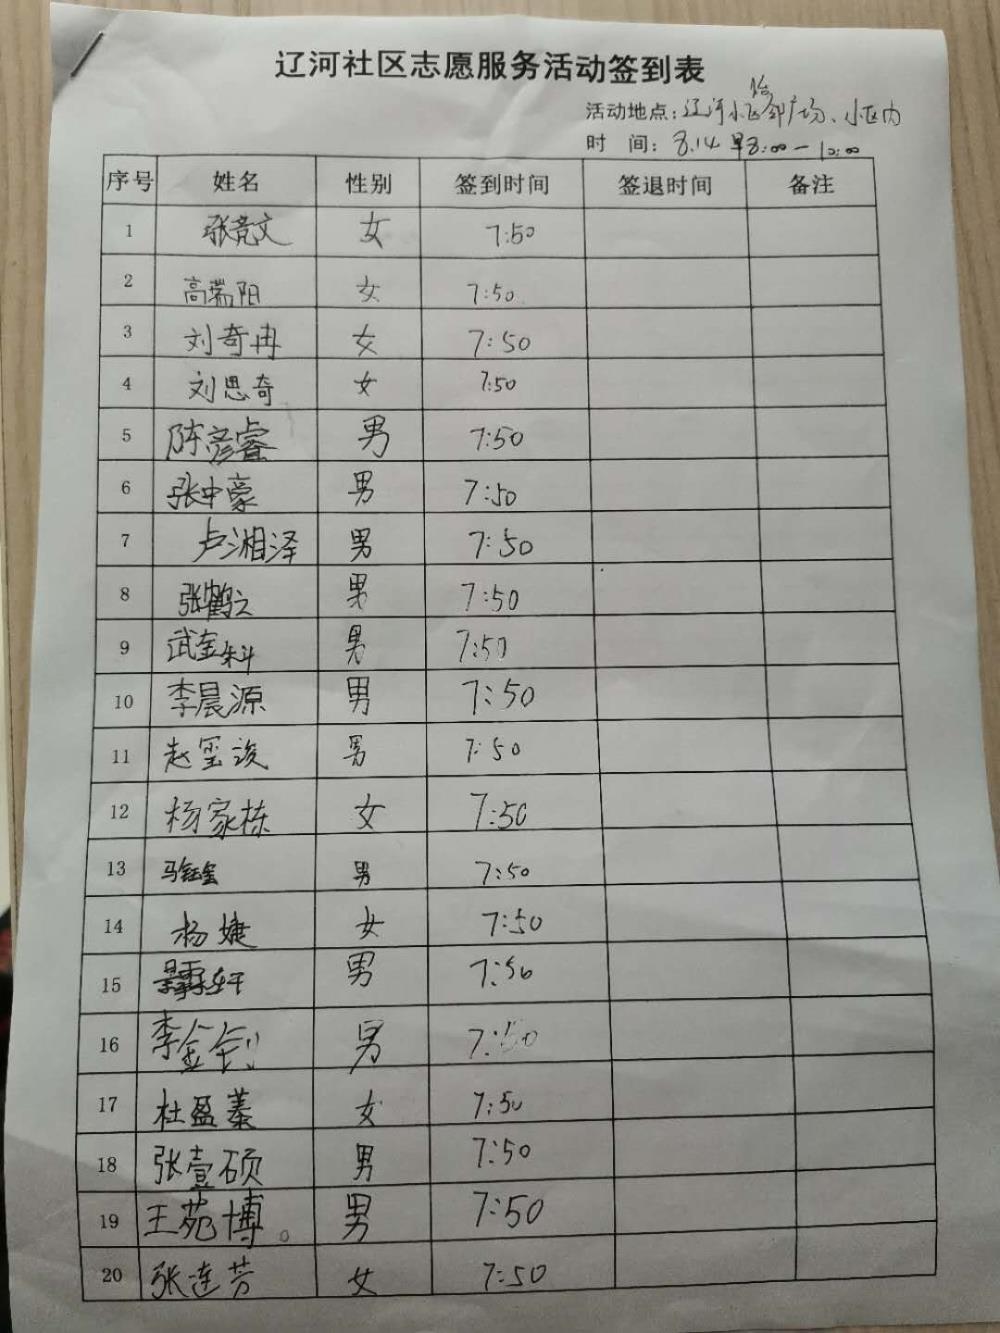 辽河社区志愿服务活动签到表
活动地点：辽河小区怡邻广场、小区内
时 间：8.14 早8:00-10:00
序号 姓名 性别 签到时间 签退时间 备注
1 张竞文 女 7:50
2 高瑞阳 女 7:50
3 刘奇冉 女 7:50
4 刘思奇 女 7:50
5 陈彦睿 男 7:50
6 张中豪 男 7:50
7 卢湘泽 男 7:50
8 张鹤之 男 7:50
9 武金科 男 7:50
10 李晨源 男 7:50
11 赵玺浚 男 7:50
12 杨家栋 女 7:50
13 马钰玺 男 7:50
14 杨婕 女 7:50
15 男 7:50
16 李金钊 男 7:50
17 杜盈蓁 女 7:50
18 张壹硕 男 7:50
19 王苑博。 男 7:50
20 张连芳 女 7:50